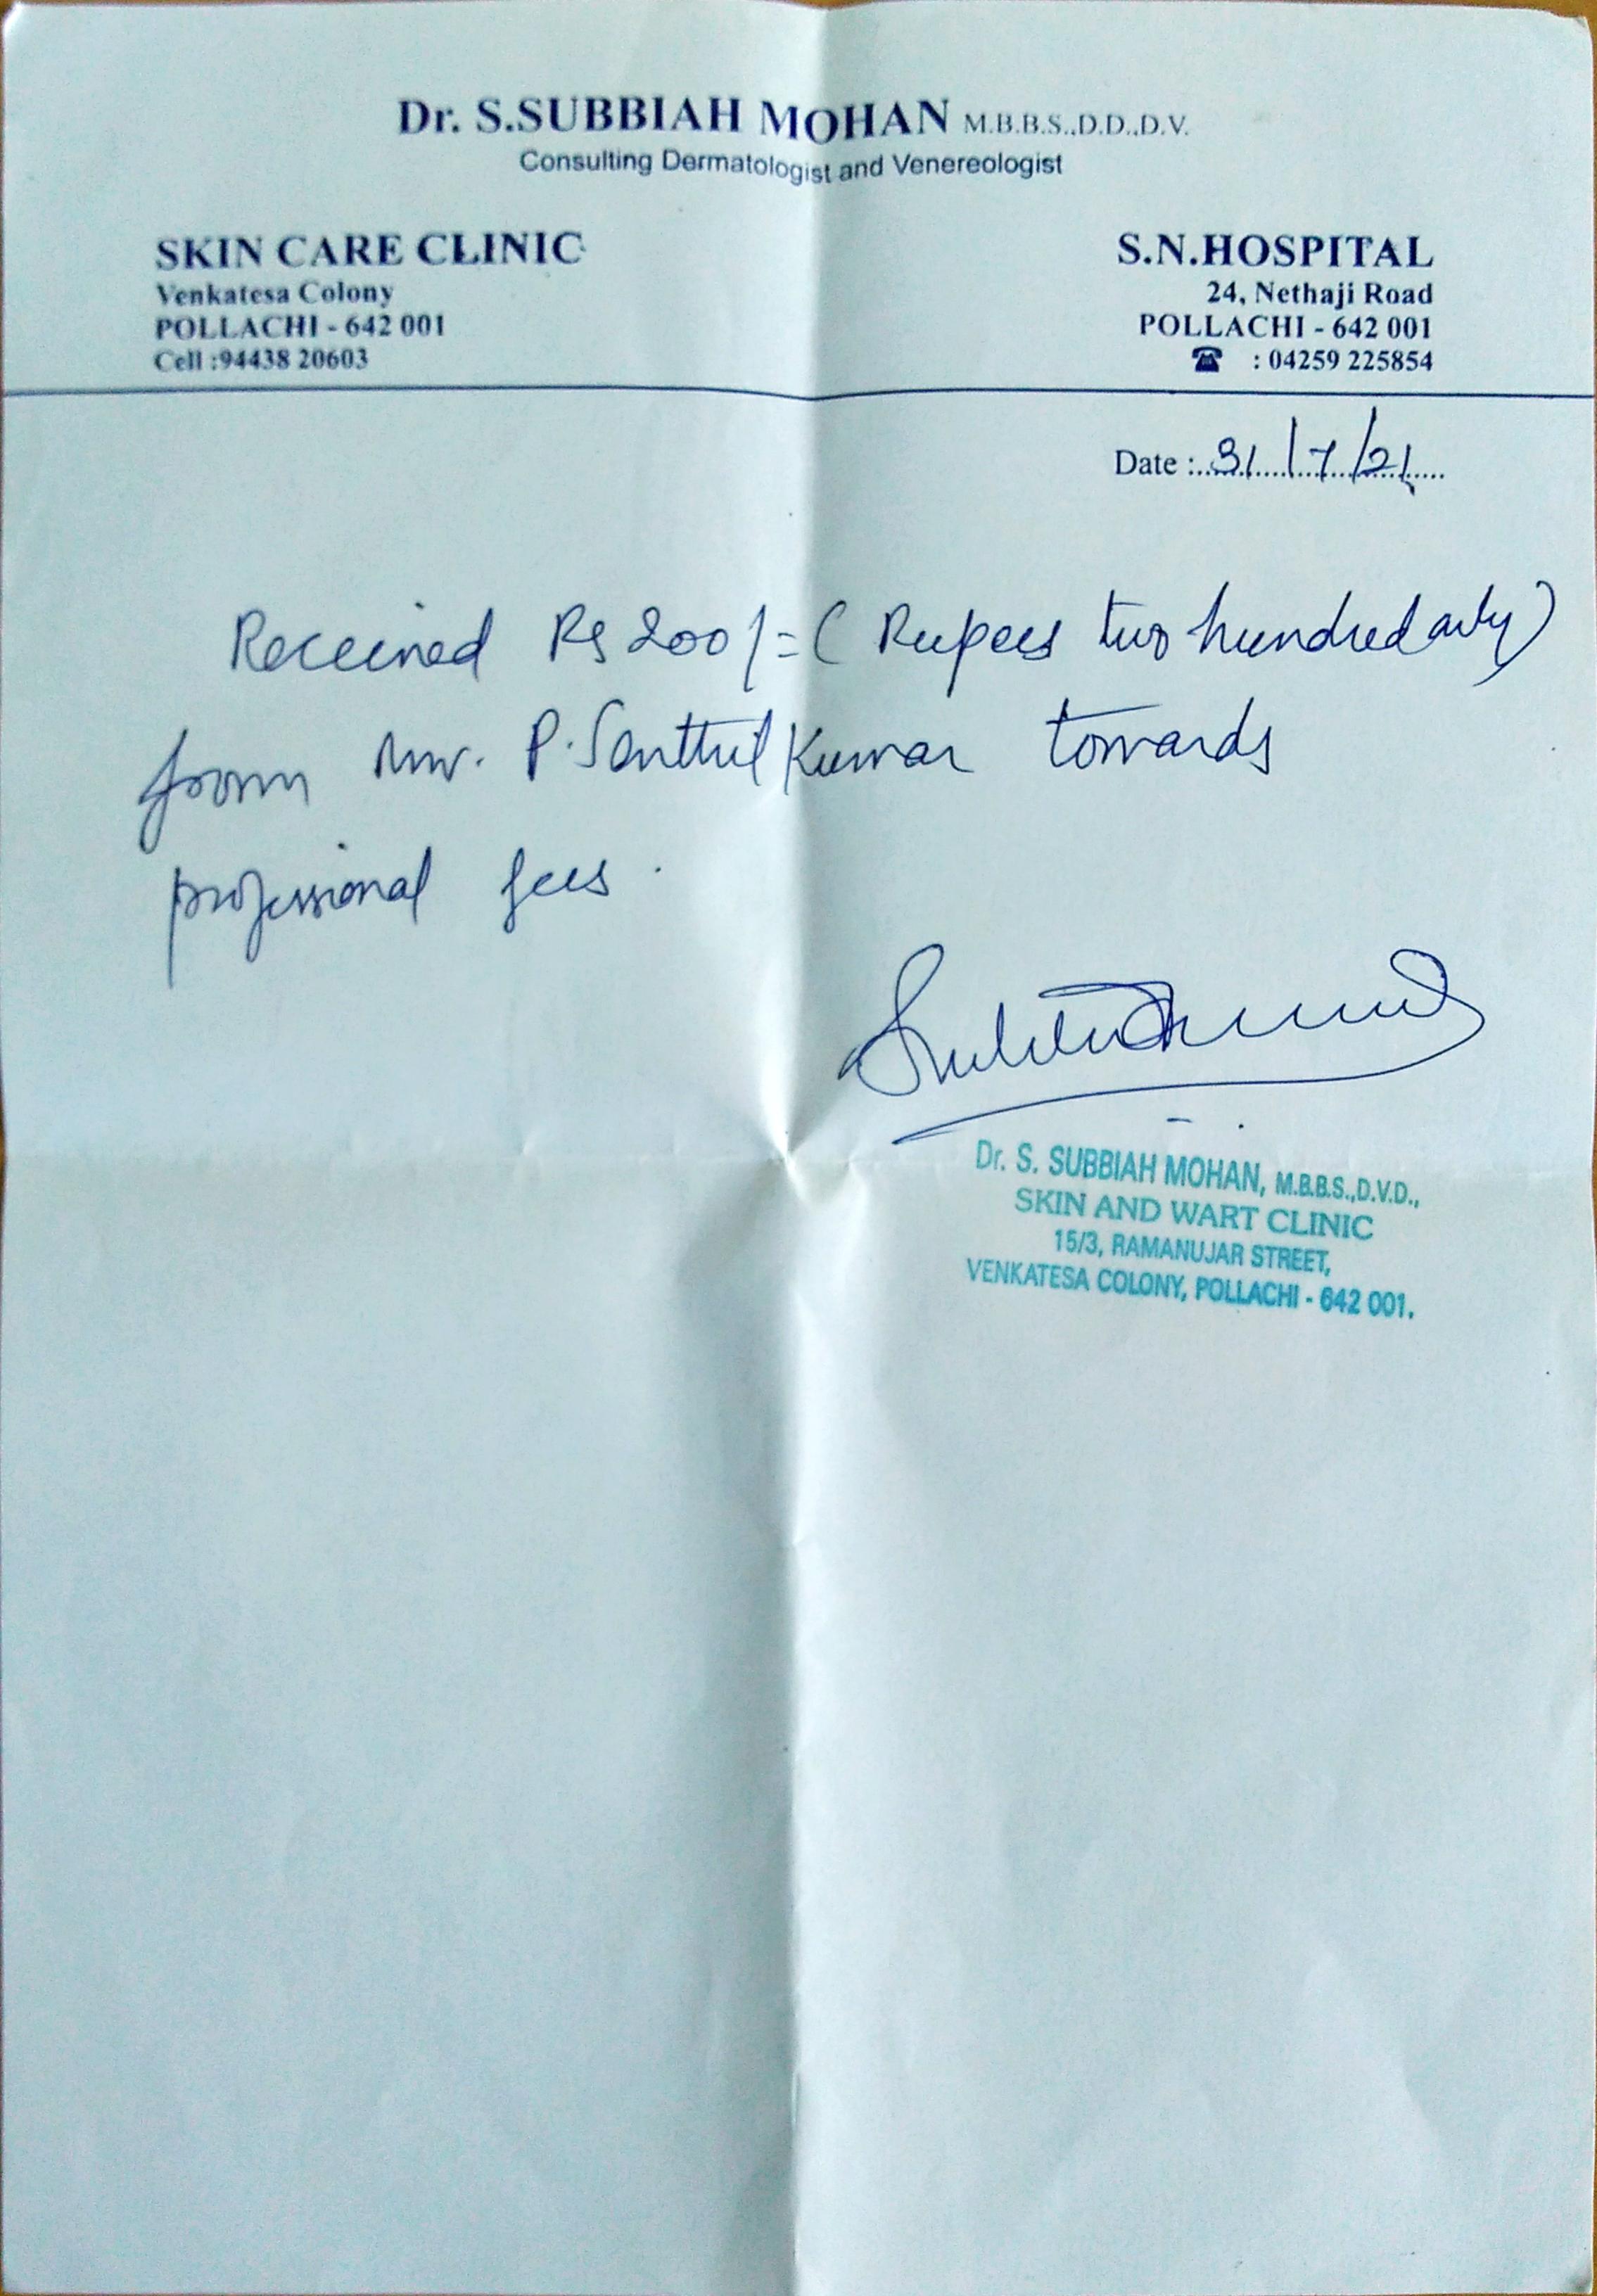 Dr. S.SUBBIAH MOHAN M.B.B.S.,D.D.,D.V.
Consulting Dermatologist and Venereologist
SKIN CARE CLINIC
Venkatesa Colony
POLLACHI - 642 001
Cell :94438 20603
S.N.HOSPITAL
24, Nethaji Road
POLLACHI - 642 001
☎ : 04259 225854
Date : 31/7/21
Received Rs 200/= ( Rupees two hundred only)
from Mr. P. Senthil Kumar towards
professional fees.
Dr. S. SUBBIAH MOHAN, M.B.B.S.,D.V.D.,
SKIN AND WART CLINIC
15/3, RAMANUJAR STREET,
VENKATESA COLONY, POLLACHI - 642 001.